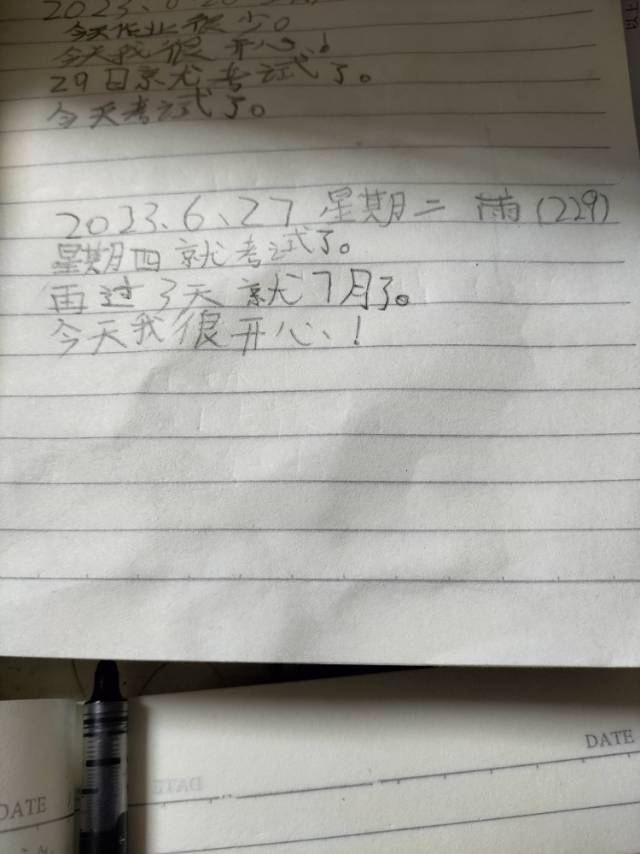 今天作业很少。
今天我很开心!
29日就考试了。
今天考试了。
2023、6、27 星期二 雨(229)
星期四就考试了。
再过3天就7月了。
今天我很开心、!
DATE
DATE
DATE